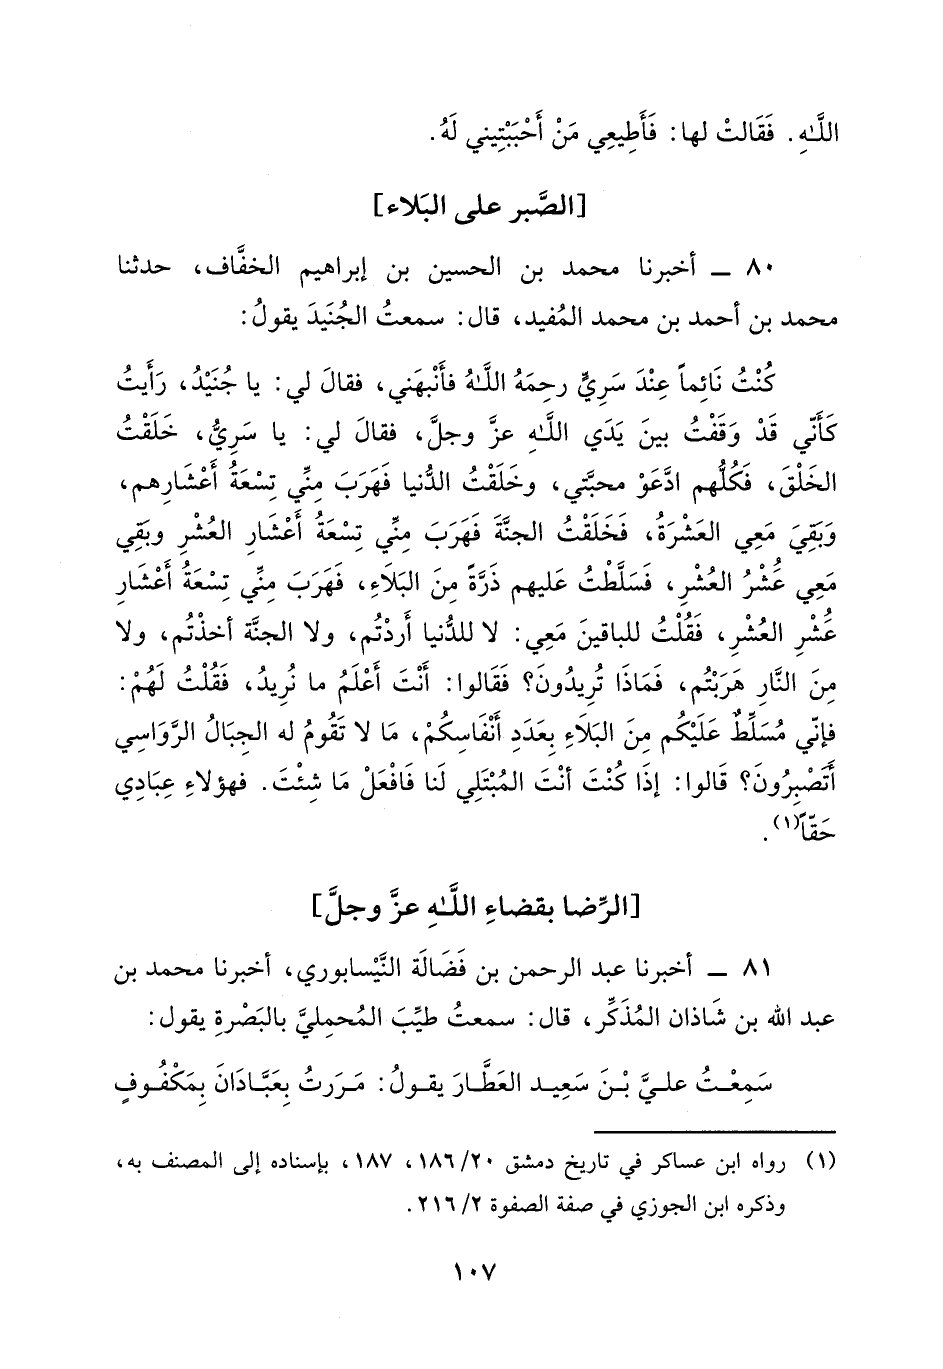 اللَّـٰهِ. فَقَالتْ لها: فَأَطِيعِي مَنْ أَحْبَبْتِيني لَهُ.
[الصَّبر على البَلاء]
٨٠ ــ أخبرنا محمد بن الحسين بن إبراهيم الخفَّاف، حدثنا
محمد بن أحمد بن محمد المُفيد، قال: سمعتُ الجُنَيدَ يقولُ:
كُنْتُ نَائِماً عِنْدَ سَرِيٍّ رحِمَهُ اللَّـٰهُ فأَنْبهَني، فقالَ لي: يا جُنَيْدُ، رَأَيتُ
كَأَنّي قَدْ وَقَفْتُ بينَ يَدَي اللَّـٰهِ عزَّ وجلَّ، فقالَ لي: يا سَرِيُّ، خَلَقْتُ
الخَلْقَ، فَكُلُّهم ادَّعَوْ محبَّتي، وخَلَقْتُ الدُّنيا فَهَرَبَ مِنِّي تِسْعَةُ أَعْشَارِهم،
وَبَقِيَ مَعِي العَشْرَةُ، فَخَلَقْتُ الجنَّةَ فَهَرَبَ مِنِّي تِسْعَةُ أَعْشَارِ العُشْرِ وبَقِي
مَعِي عُشْرُ العُشْرِ، فَسَلَّطْتُ عَليهم ذَرَّةً مِنَ البَلَاءِ، فَهَرَبَ مِنِّي تِسْعَةُ أَعْشَارِ
عُشْرِ العُشْرِ، فَقُلْتُ للباقينَ مَعِي: لا للدُّنيا أَردْتُم، ولا الجنَّة أخذْتُم، ولا
مِنَ النَّارِ هَرَبْتُم، فَمَاذَا تُرِيدُونَ؟ فَقَالوا: أَنْتَ أَعْلَمُ ما نُرِيدُ، فَقُلْتُ لَهُمْ:
فإنّي مُسَلِّطٌ عَلَيْكُم مِنَ البَلَاءِ بِعَدَدِ أَنْفَاسِكُمْ، مَا لا تَقُومُ له الجِبَالُ الرَّوَاسِي
أَتَصْبِرُونَ؟ قَالوا: إذَا كُنْتَ أنْتَ المُبْتَلِي لَنا فَافْعَلْ مَا شِئْتَ. فهؤلاءِ عِبَادِي
حَقّاً(١).
[الرِّضا بقضاءِ اللَّـٰهِ عزَّ وجلَّ]
٨١ ــ أخبرنا عبد الرحمن بن فَضَالَة النَّيْسابوري، أخبرنا محمد بن
عبد الله بن شَاذان المُذَكِّر، قال: سمعتُ طيِّبَ المُحمليَّ بالبَصْرةِ يقول:
سَمِعْـتُ علـيَّ بْـنَ سَعِيـد العَطَّـارَ يقـولُ: مَـرَرتُ بِعَبَّـادَانَ بِمَكْفُـوفٍ
(١) رواه ابن عساكر في تاريخ دمشق ٢٠/ ١٨٦، ١٨٧، بإسناده إلى المصنف به،
وذكره ابن الجوزي في صفة الصفوة ٢/ ٢١٦.
١٠٧